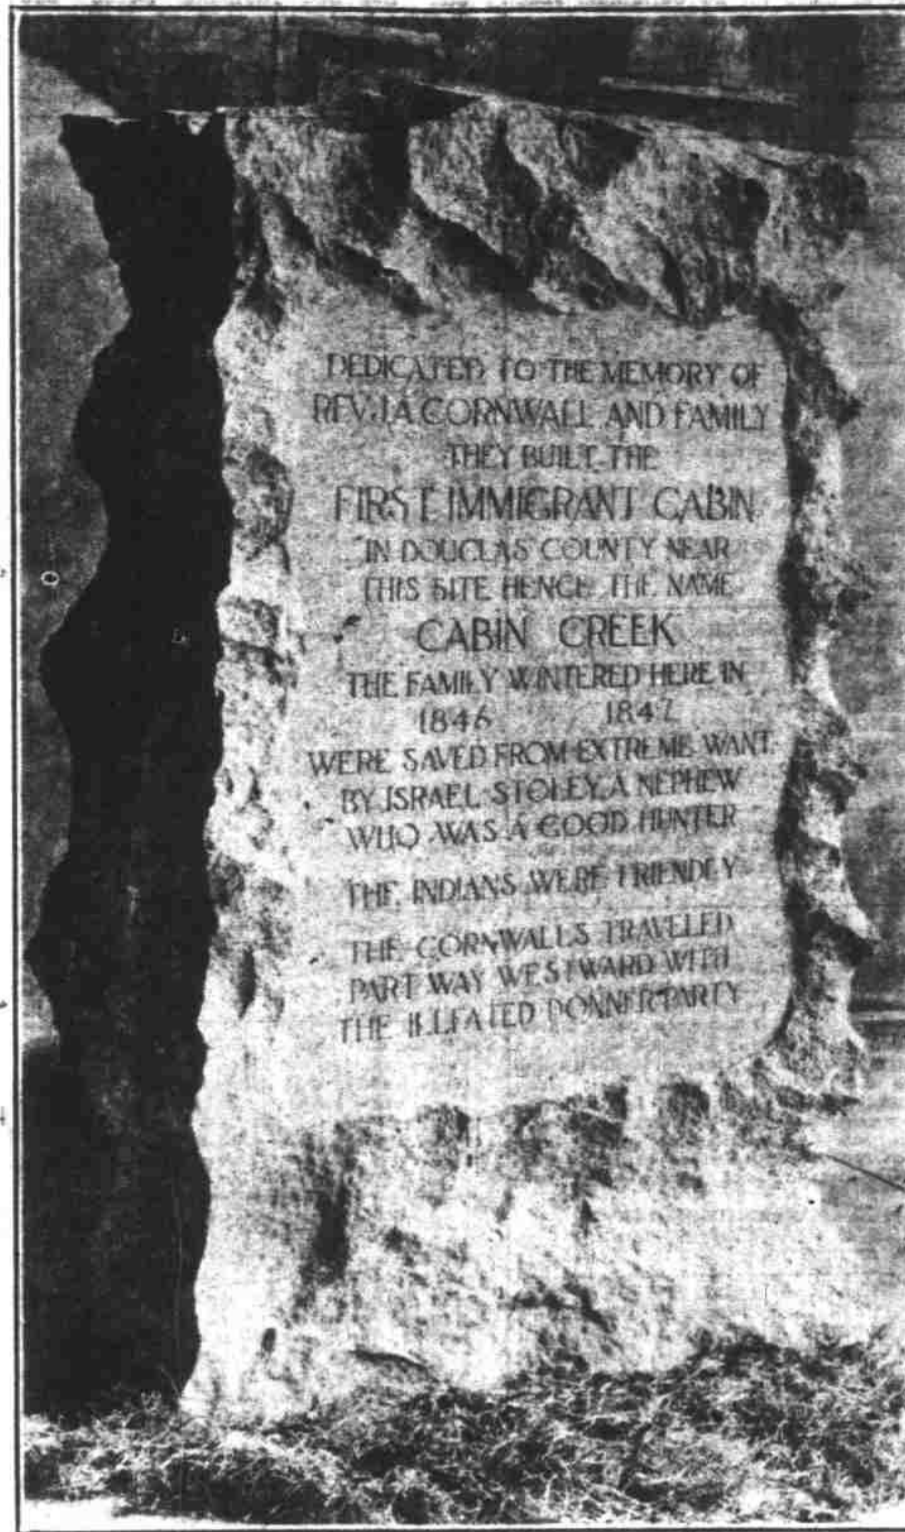 DEDICATED TO THE MEMORY OF
REV. J.A. CORNWALL AND FAMILY
THEY BUILT THE
FIRST IMMIGRANT CABIN
IN DOUGLAS COUNTY NEAR
THIS SITE HENCE THE NAME
CABIN CREEK
THE FAMILY WINTERED HERE IN
1846 1847
WERE SAVED FROM EXTREME WANT
BY ISRAEL STOLEY, A NEPHEW
WHO WAS A GOOD HUNTER
THE INDIANS WERE FRIENDLY
THE CORNWALLS TRAVELED
PART WAY WESTWARD WITH
THE ILLFATED DONNER PARTY